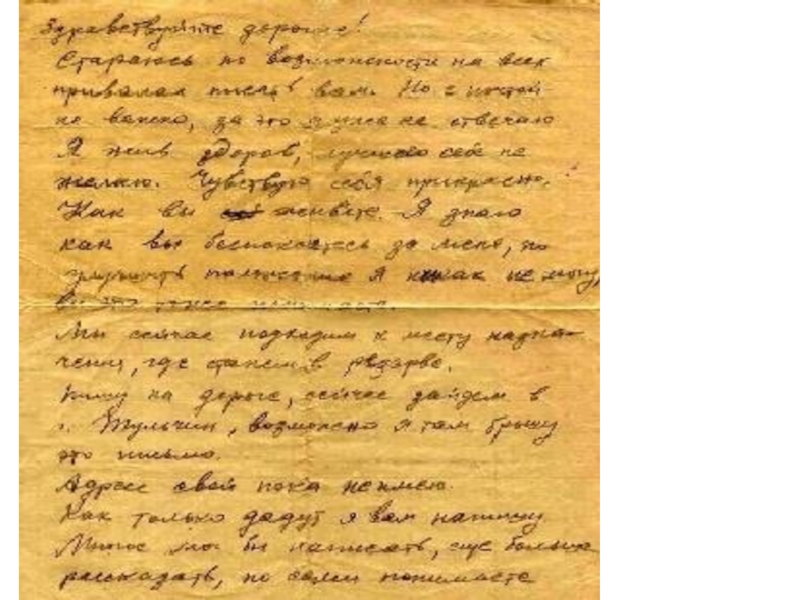 Здравствуйте дорогие!
Стараюсь по возможности на всех
привалах писать вам. Но с почтой
не важно, за это я уже не отвечаю
Я жив здоров, лучшего себе не
желаю. Чувствую себя прикрасно.
Как вы живёте. Я знаю
как вы беспокоетесь за меня, но
улучшить положение я никак не могу,
вы это тоже понимаете.
Мы сейчас подходим к месту назна-
чения, где станем в резерве.
Пишу на дороге, сейчас зайдем в
г. Тульчин, возможно я там брошу
это письмо.
Адрес свой пока не имею.
Как только дадут я вам напишу
Многое мог бы написать, еще больше
рассказать, но сами понимаете